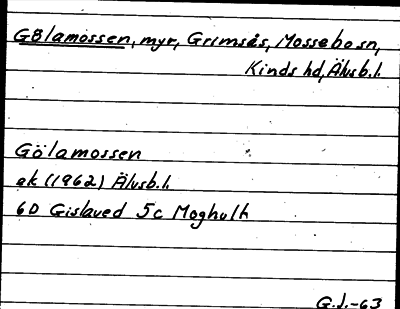 Gölamossen, myr, Grimsås, Mossebo sn,
Kinds hd, Älvsb. l.
Gölamossen
ek (1962) Älvsb. l.
6D Gislaved 5c Moghult
G.J.-63